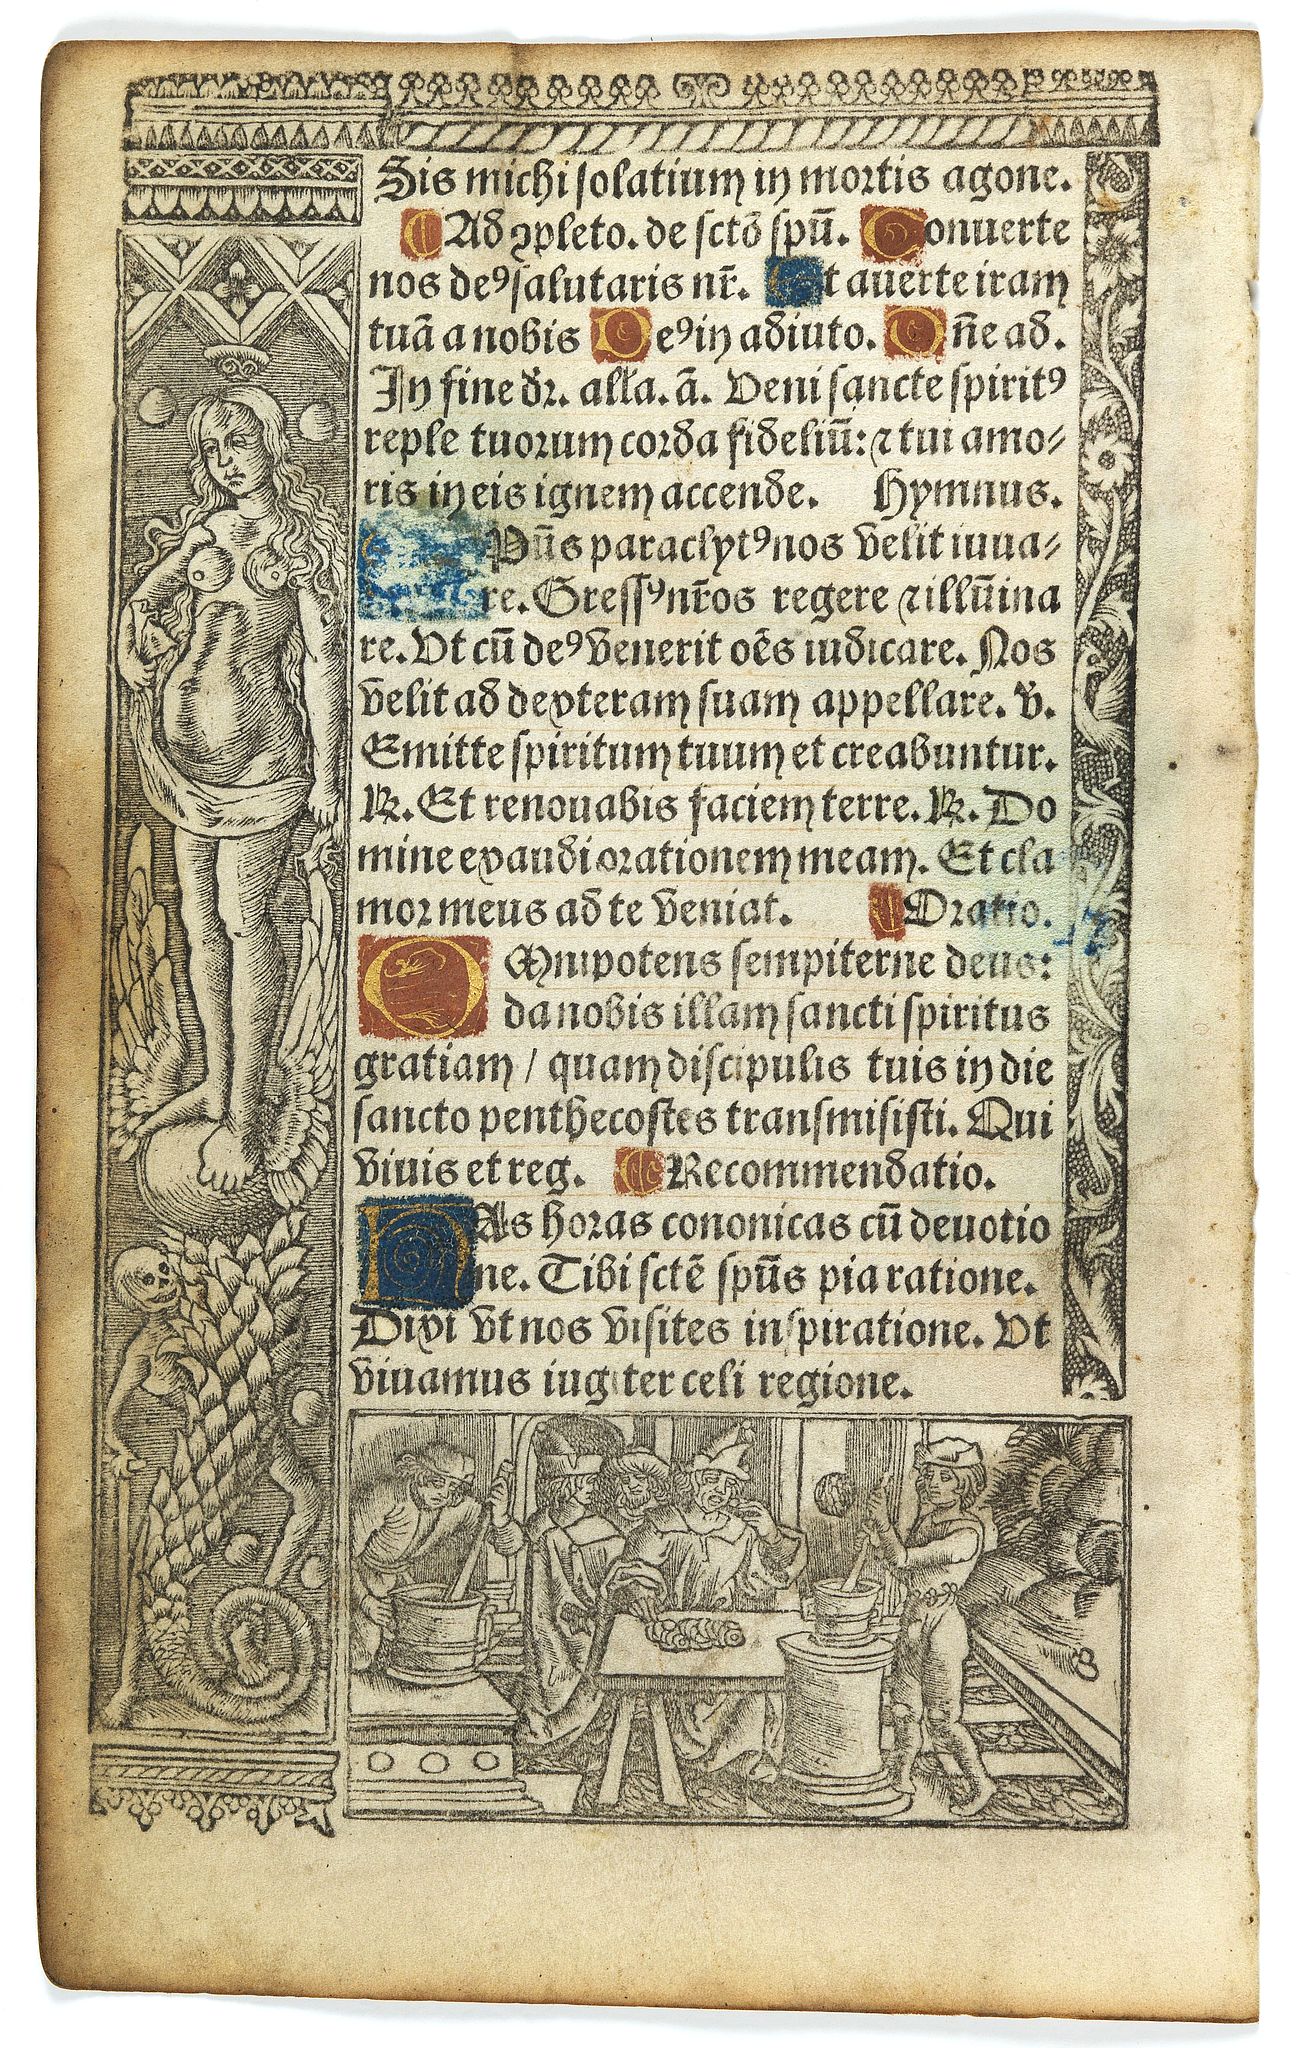 Sis michi solatium in mortis agone.
Ad ꝯpleto. de sctõ spũ. Conuerte
nos deꝰ salutaris nr̃. Et auerte iram
tuã a nobis Deꝰ in adiuto. Dñe ad.
In fine dr̃. alla. ã. Veni sancte spiritꝰ
reple tuorum corda fideliũ: ⁊ tui amo⸗
ris in eis ignem accende. Hymnus.
Spũs paraclytꝰ nos velit iuua⸗
re. Gressꝰ nr̃os regere ⁊ illũina
re. Vt cũ deꝰ venerit oẽs iudicare. Nos
velit ad dexteram suam appellare. ꝟ.
Emitte spiritum tuum et creabuntur.
℞. Et renouabis faciem terre. ℞. Do
mine exaudi orationem meam. Et cla
mor meus ad te veniat. Oratio.
Omnipotens sempiterne deus:
da nobis illam sancti spiritus
gratiam / quam discipulis tuis in die
sancto penthecostes transmisisti. Qui
viuis et reg. Recommendatio.
HAs horas cononicas cũ deuotio
ne. Tibi sctẽ spũs pia ratione.
Dixi vt nos visites inspiratione. Vt
viuamus iugiter celi regione.